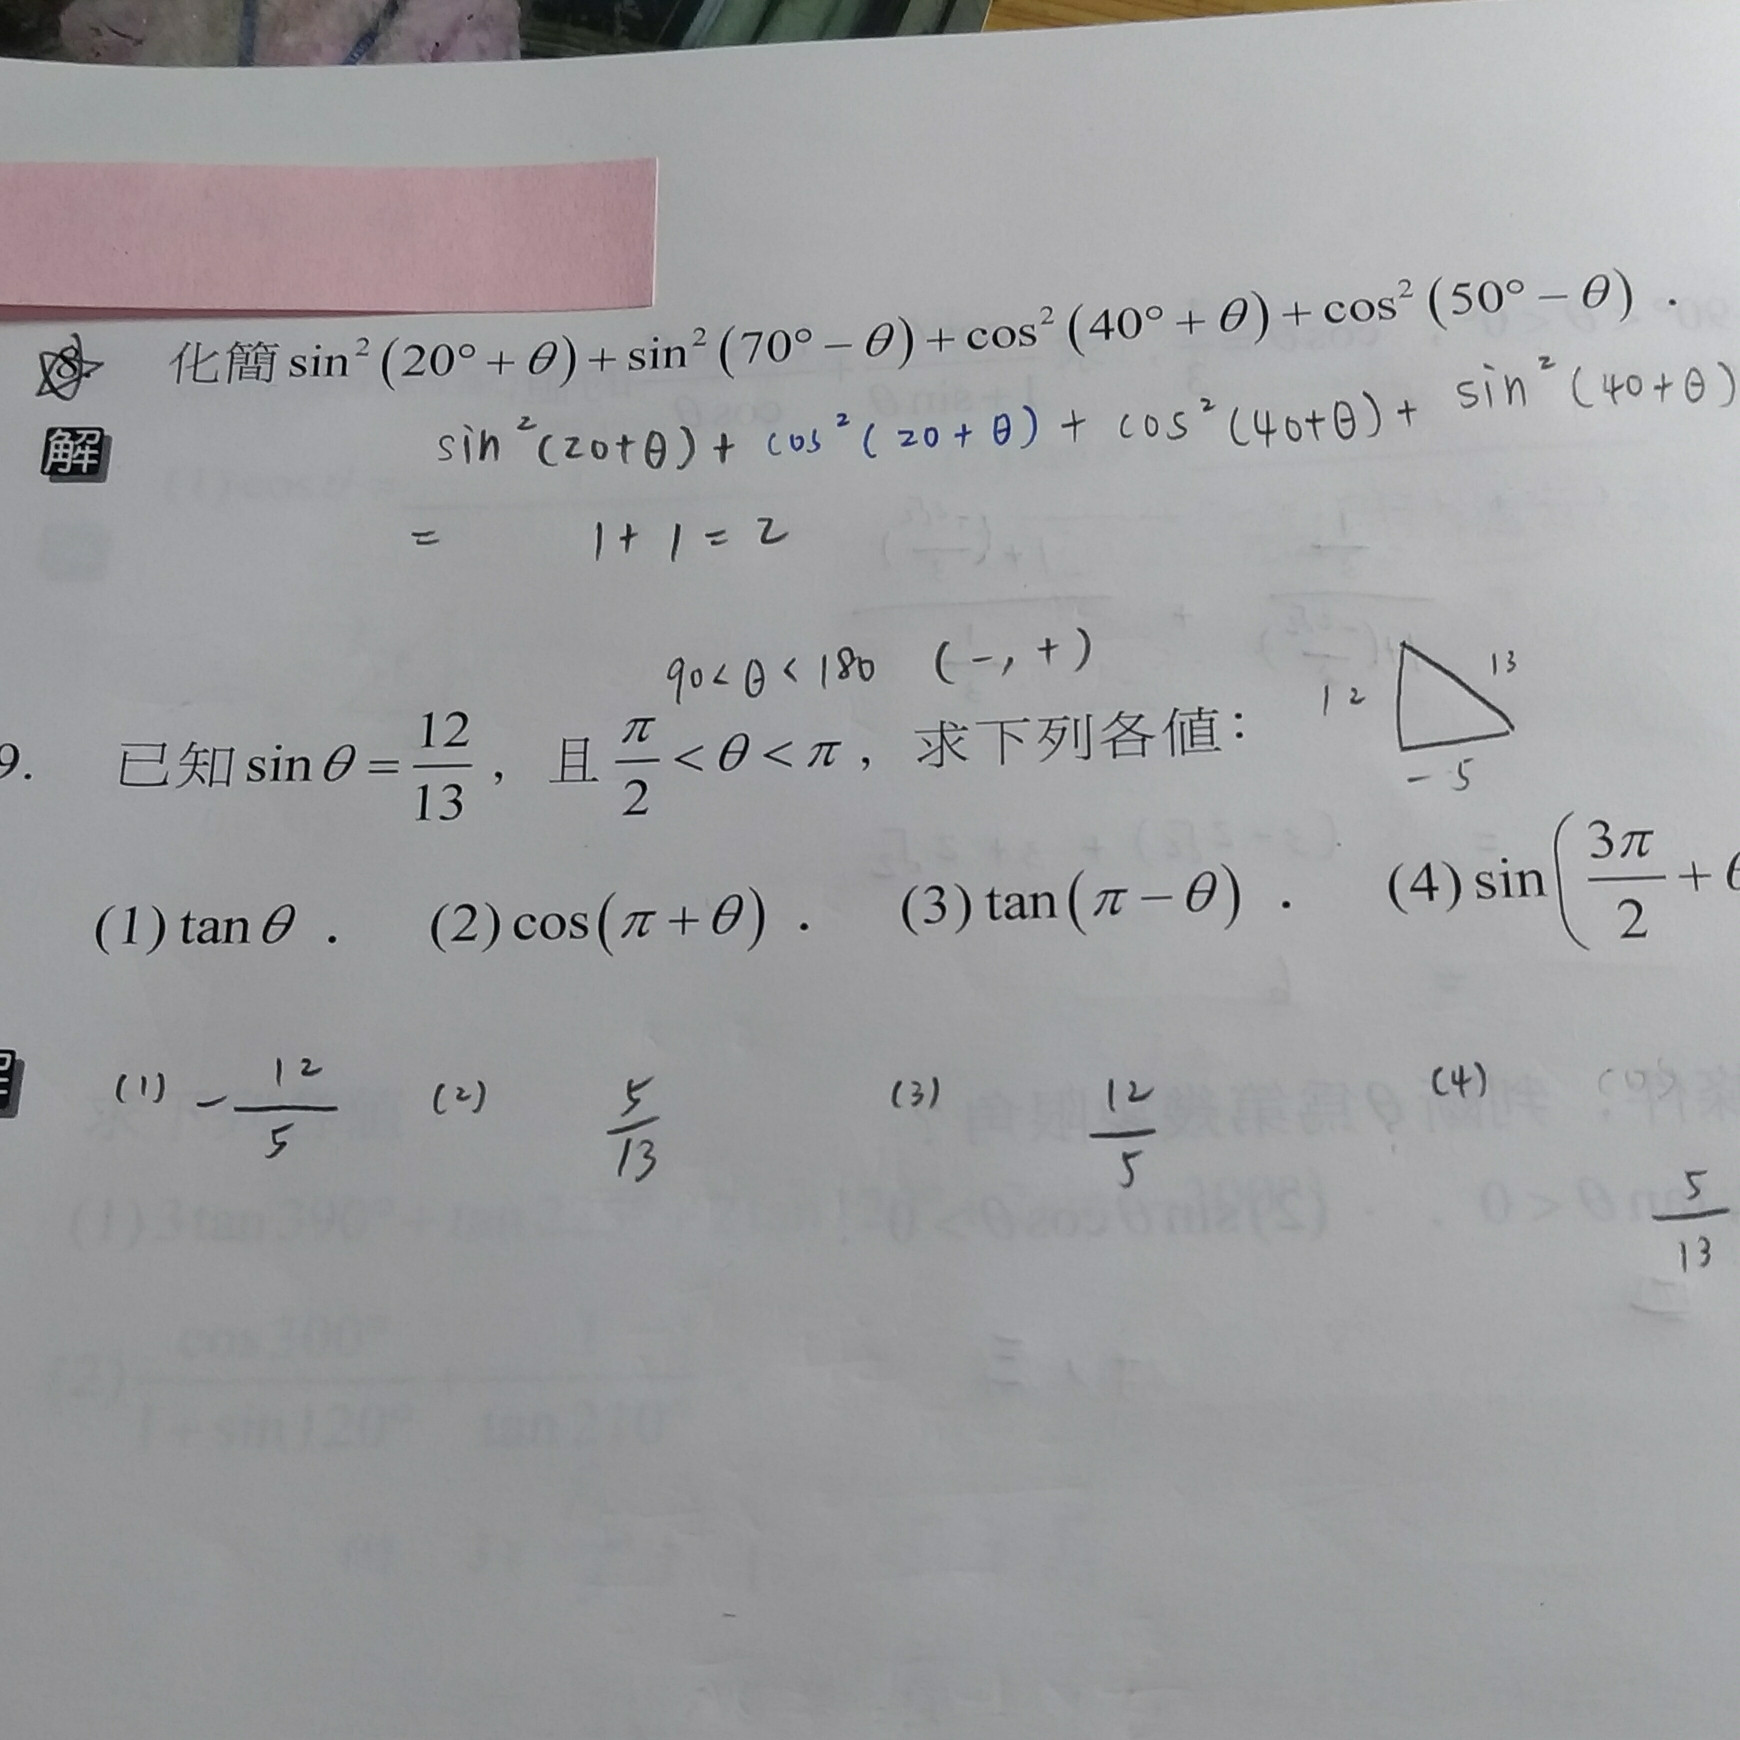 8. 化簡 sin²(20°+θ)+sin²(70°−θ)+cos²(40°+θ)+cos²(50°−θ).
解 sin²(20+θ)+cos²(20+θ)+cos²(40+θ)+sin²(40+θ)
= 1+1=2
90<θ<180 (-,+)
12 13
-5
9. 已知 sinθ=12/13，且 π/2<θ<π，求下列各值：
(1) tanθ. (2) cos(π+θ). (3) tan(π−θ). (4) sin(3π/2+θ
(1) -12/5 (2) 5/13 (3) 12/5 (4) 5/13